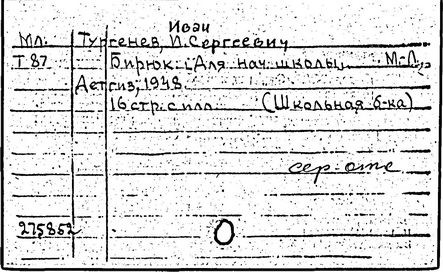 Иван
Мл. Тургенев, И. Сергеевич
Т 87 Бирюк. [Для нач. школы]. М.-Л.,
Детгиз, 1948.
16 стр. с илл. (Школьная б-ка)
сер. оте
275852